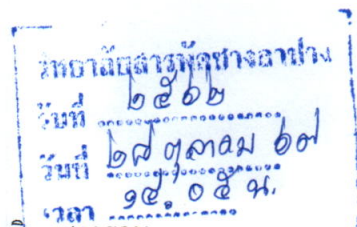 วิทยาลัยสารพัดช่างลำปาง
รับที่ ๒๕๖๒
วันที่ ๒๘ ตุลาคม ๖๗
เวลา ๑๕.๐๕ น.